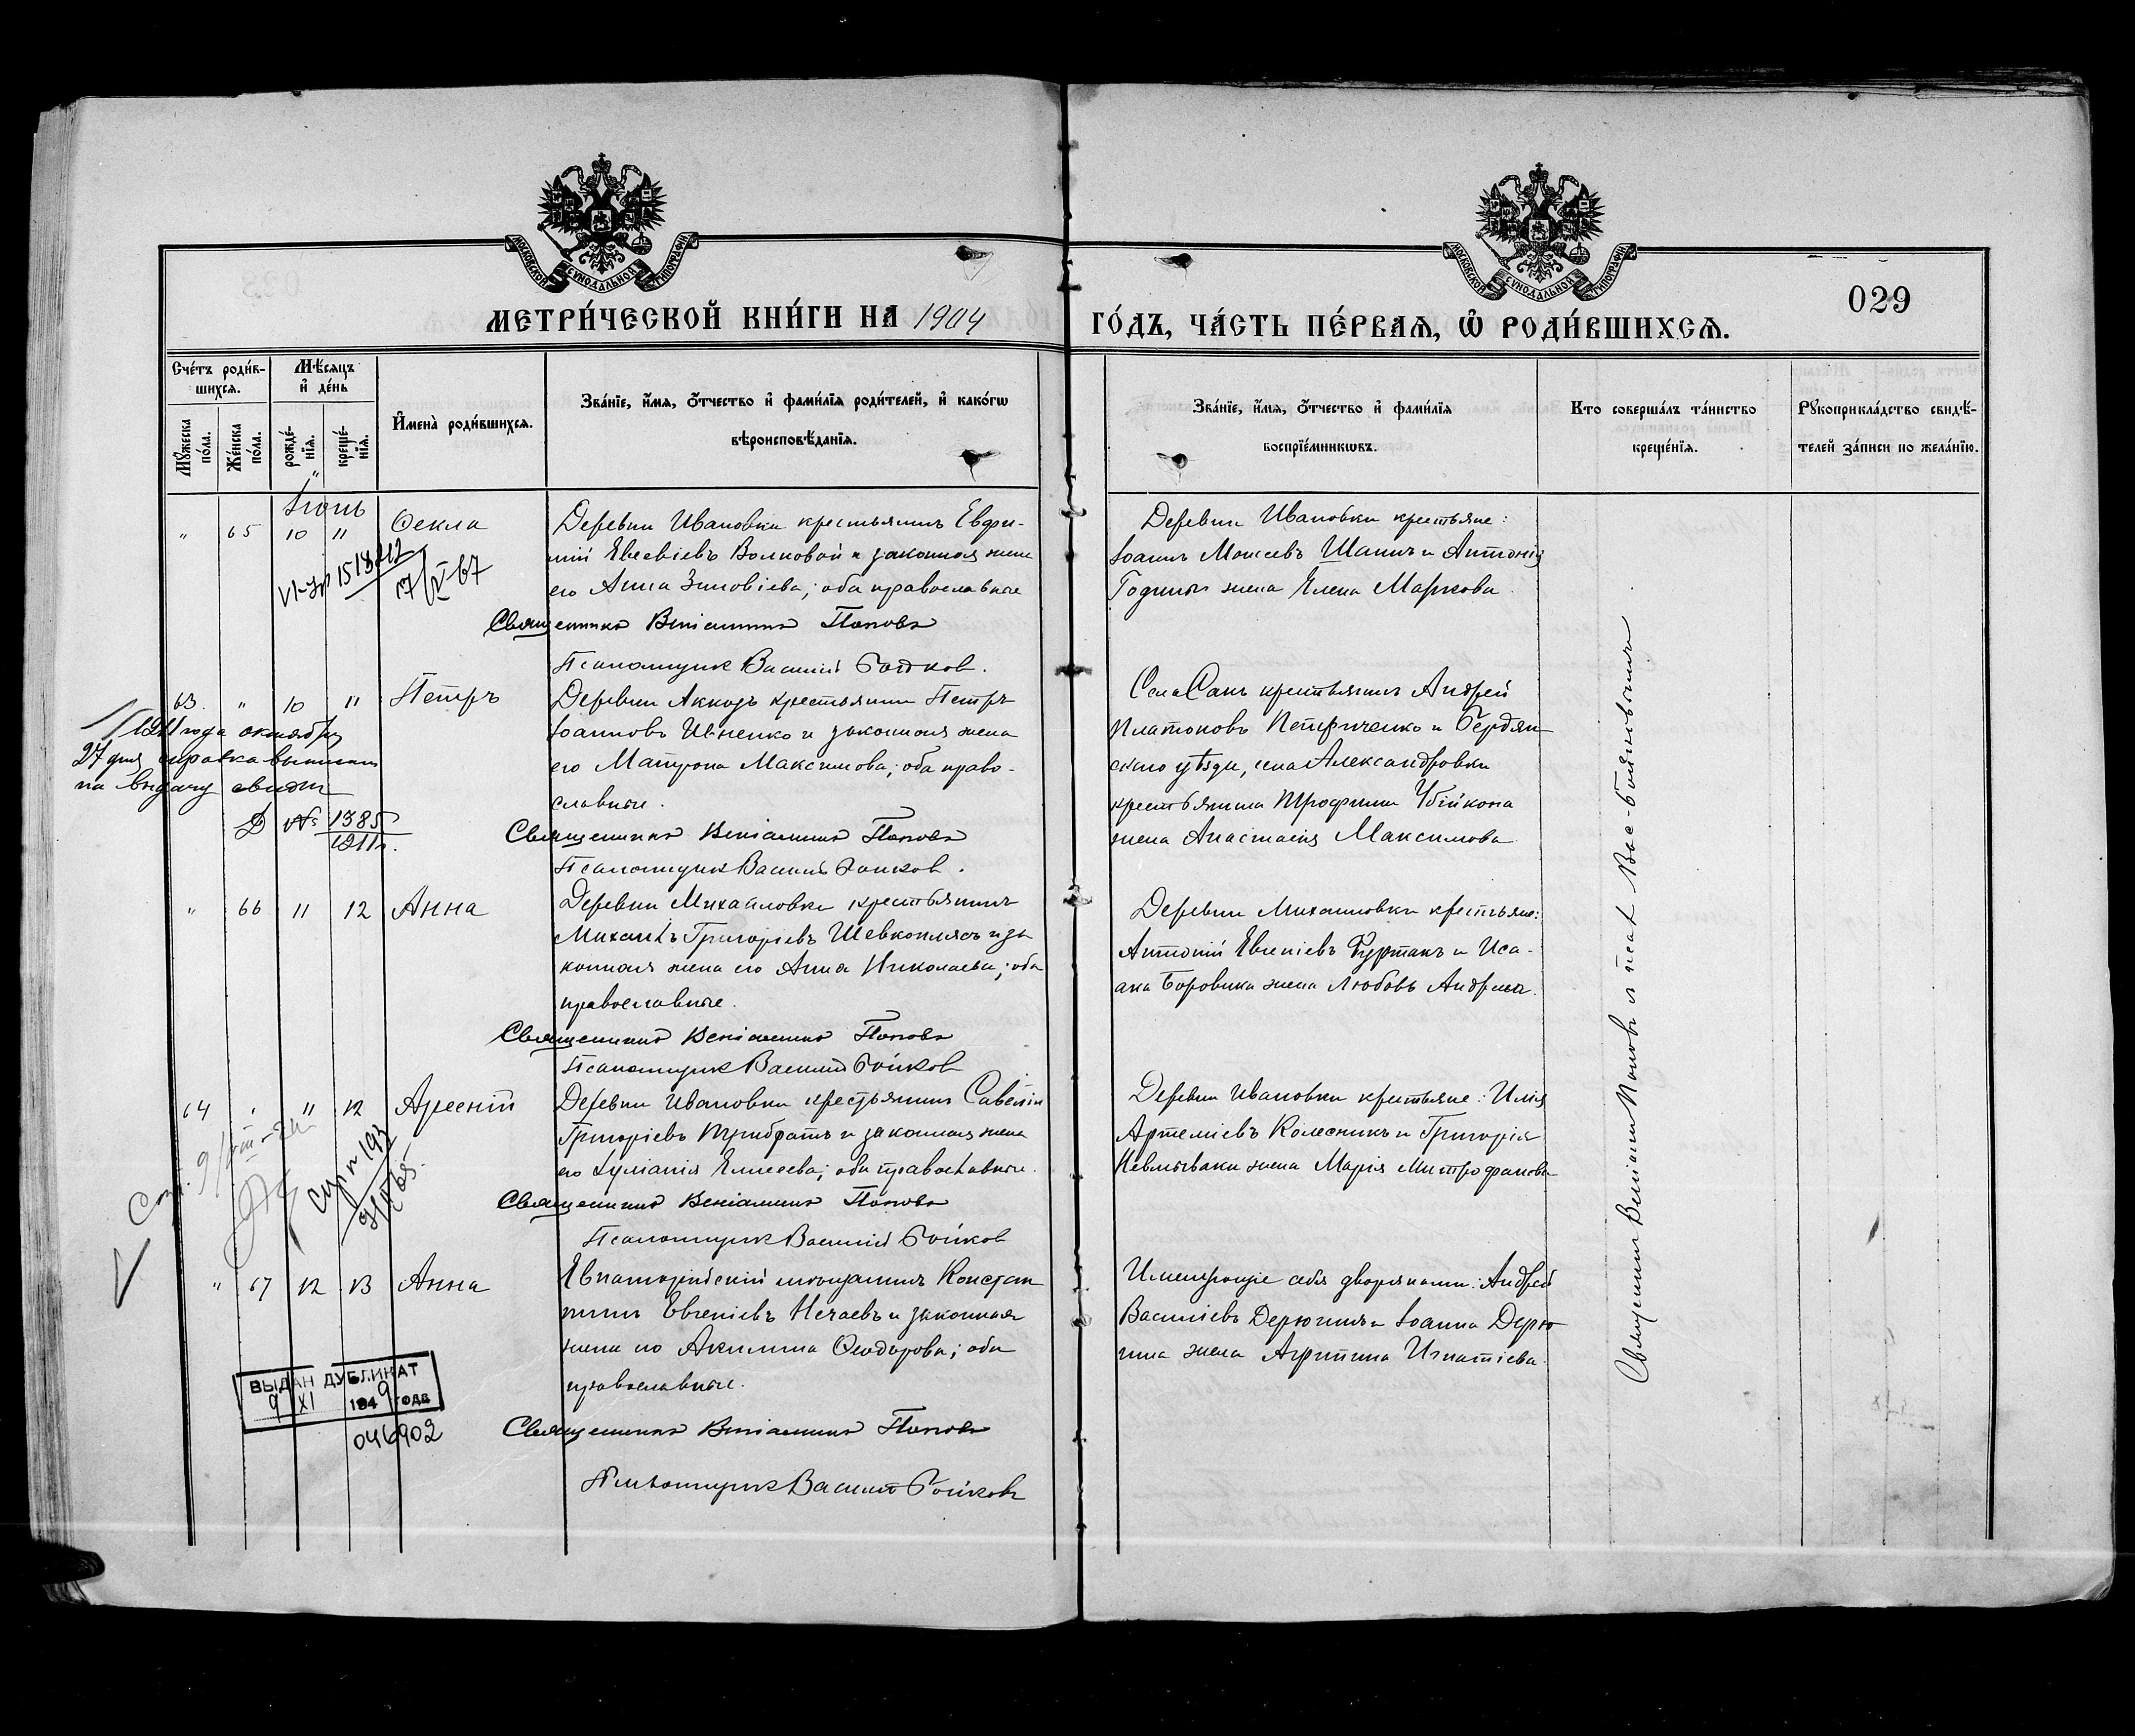 МОСКОВСКОЙ СѴНОДАЛЬНОЙ ТИПОГРАФІИ
МОСКОВСКОЙ СѴНОДАЛЬНОЙ ТИПОГРАФІИ
029
МЕТРИ́ЧЕСКОЙ КНИ́ГИ НА 1904 ГО́ДЪ, ЧА́СТЬ ПЕ́РВАЯ, Ѡ҆ РОДИ́ВШИХСѦ.
Сче́тъ роди́в-
шихсѧ.
Мꙋ́жеска по́ла.
Же́нска по́ла.
Мѣ́сѧцъ
и҆ де́нь
рожде́-
нїѧ.
креще́-
нїѧ.
И҆мена̀ роди́вшихсѧ.
Зва́нїе, и҆́мѧ, ѻ҆́тчество и҆ фами́лїѧ роди́телей, и҆ како́гѡ
вѣроисповѣ́данїѧ.
Зва́нїе, и҆́мѧ, ѻ҆́тчество и҆ фами́лїѧ
воспрїе́мникѡвъ.
Кто соверша́лъ та́инство
креще́нїѧ.
Рꙋкоприкла́дство свидѣ́-
телей за́писи по жела́нїю.
Іюнь
" 65 10 11 Ѳекла
Деревни Ивановки крестьянинъ Евфи-
мій Евсевіевъ Волковой и законная жена
его Анна Зиновіева; оба православные
Священникъ Веніаминъ Поповъ
Псаломщик Василій Бойков.
Деревни Ивановки крестьяне:
Іоаннъ Моисеевъ Шапинъ и Антонія
Година жена Елена Маркова
151842
17/IV-67
63. " 10 11 Петръ
Деревни Аккозъ крестьянинъ Петръ
Іоанновъ Ивненко и законная жена
его Матрона Максимова; оба право-
славные.
Священникъ Веніаминъ Поповъ
Псаломщик Василій Бойков.
Села Сакъ крестьянинъ Андрей
Платоновъ Петриченко и Бердян-
скаго уѣзда, села Александровки
крестьянина Трофима Убійкона
жена Анастасія Максимова
1911 года октября
27 дня справка выписана
на выдачу свидѣт
№ 1385
1911г.
" 66 11 12 Анна
Деревни Михайловки крестьянинъ
Михаилъ Григоріевъ Шевкоплясъ и за-
конная жена его Анна Николаева; оба
православные.
Священникъ Веніаминъ Поповъ
Псаломщик Василій Бойков
Деревни Михайловки крестьяне:
Антоній Евгеніевъ Буртакъ и Иса-
ака Боровика жена Любовь Андреева.
64 " " 12 Арсеній
Деревни Ивановки крестьянинъ Савелій
Григоріевъ Трибратъ и законная жена
его Іуліанія Елисеева; оба православные.
Священникъ Веніаминъ Поповъ
Псаломщик Василій Бойков
Деревни Ивановки крестьяне: Илія
Артеміевъ Колесникъ и Григорія
Невмываки жена Марія Митрофанова
" 67 12 13 Анна
Евпаторійскій мѣщанинъ Констан-
тинъ Евгеніевъ Нечаевъ и законная
жена его Акилина Ѳеодорова; оба
православные.
Священникъ Веніаминъ Поповъ
Псаломщик Василій Бойковъ
Именующіе себя дворянами: Андрей
Василіевъ Дерюгинъ и Іоанна Дерю-
гина жена Агрипина Игнатіева.
ВЫДАН ДУБЛИКАТ
9 XI 1949 года
046902
Священникъ Веніаминъ Поповъ и псал. Вас. Бойковъ